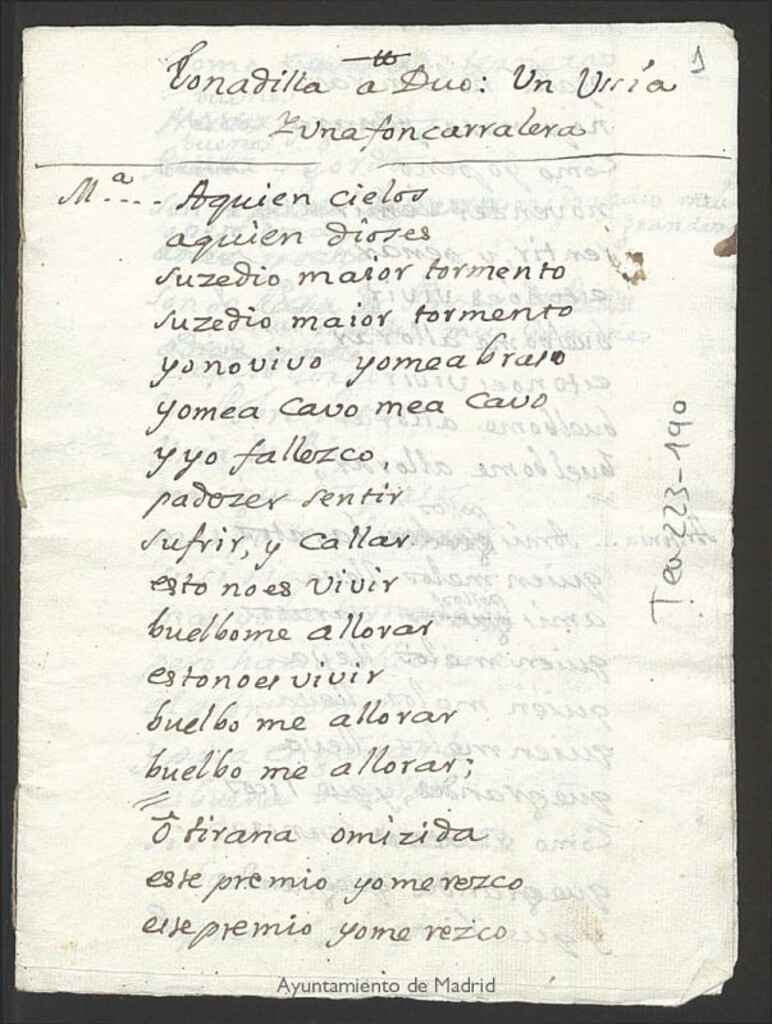 1
Tonadilla a Duo: Un Usía
Y una foncarralera
M.ª... Aquien cielos
aquien dioses
suzedio maior tormento
suzedio maior tormento
yo no vivo yo me abraso
yo mea cavo mea cavo
y yo fallezco,
padezer sentir
sufrir, y callar.
esto no es vivir
buelbome allorar
esto no es vivir
buelbo me allorar
buelbo me allorar;
Ô tirana omizida
este premio yo merezco
este premio yo me rezco
Tea 223-190
Ayuntamiento de Madrid